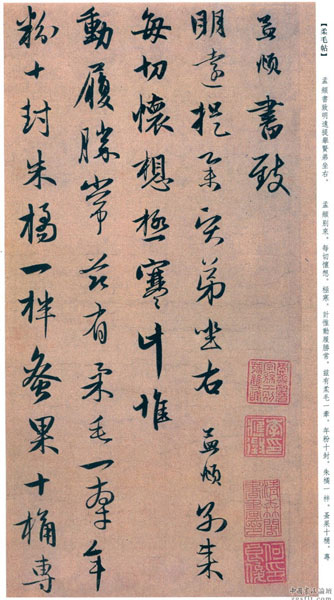 【柔毛帖】
孟頫書致明遠提舉賢弟坐右。 孟頫別來,每切懷想。極寒,計惟動履勝常。茲有柔毛一牽,年粉十封,朱橘一柈,蚤果十桶,專
孟頫書致
明遠提舉賢弟坐右 孟頫別來
每切懷想極寒計惟
動履勝常茲有柔毛一牽年
粉十封朱橘一柈蚤果十桶專